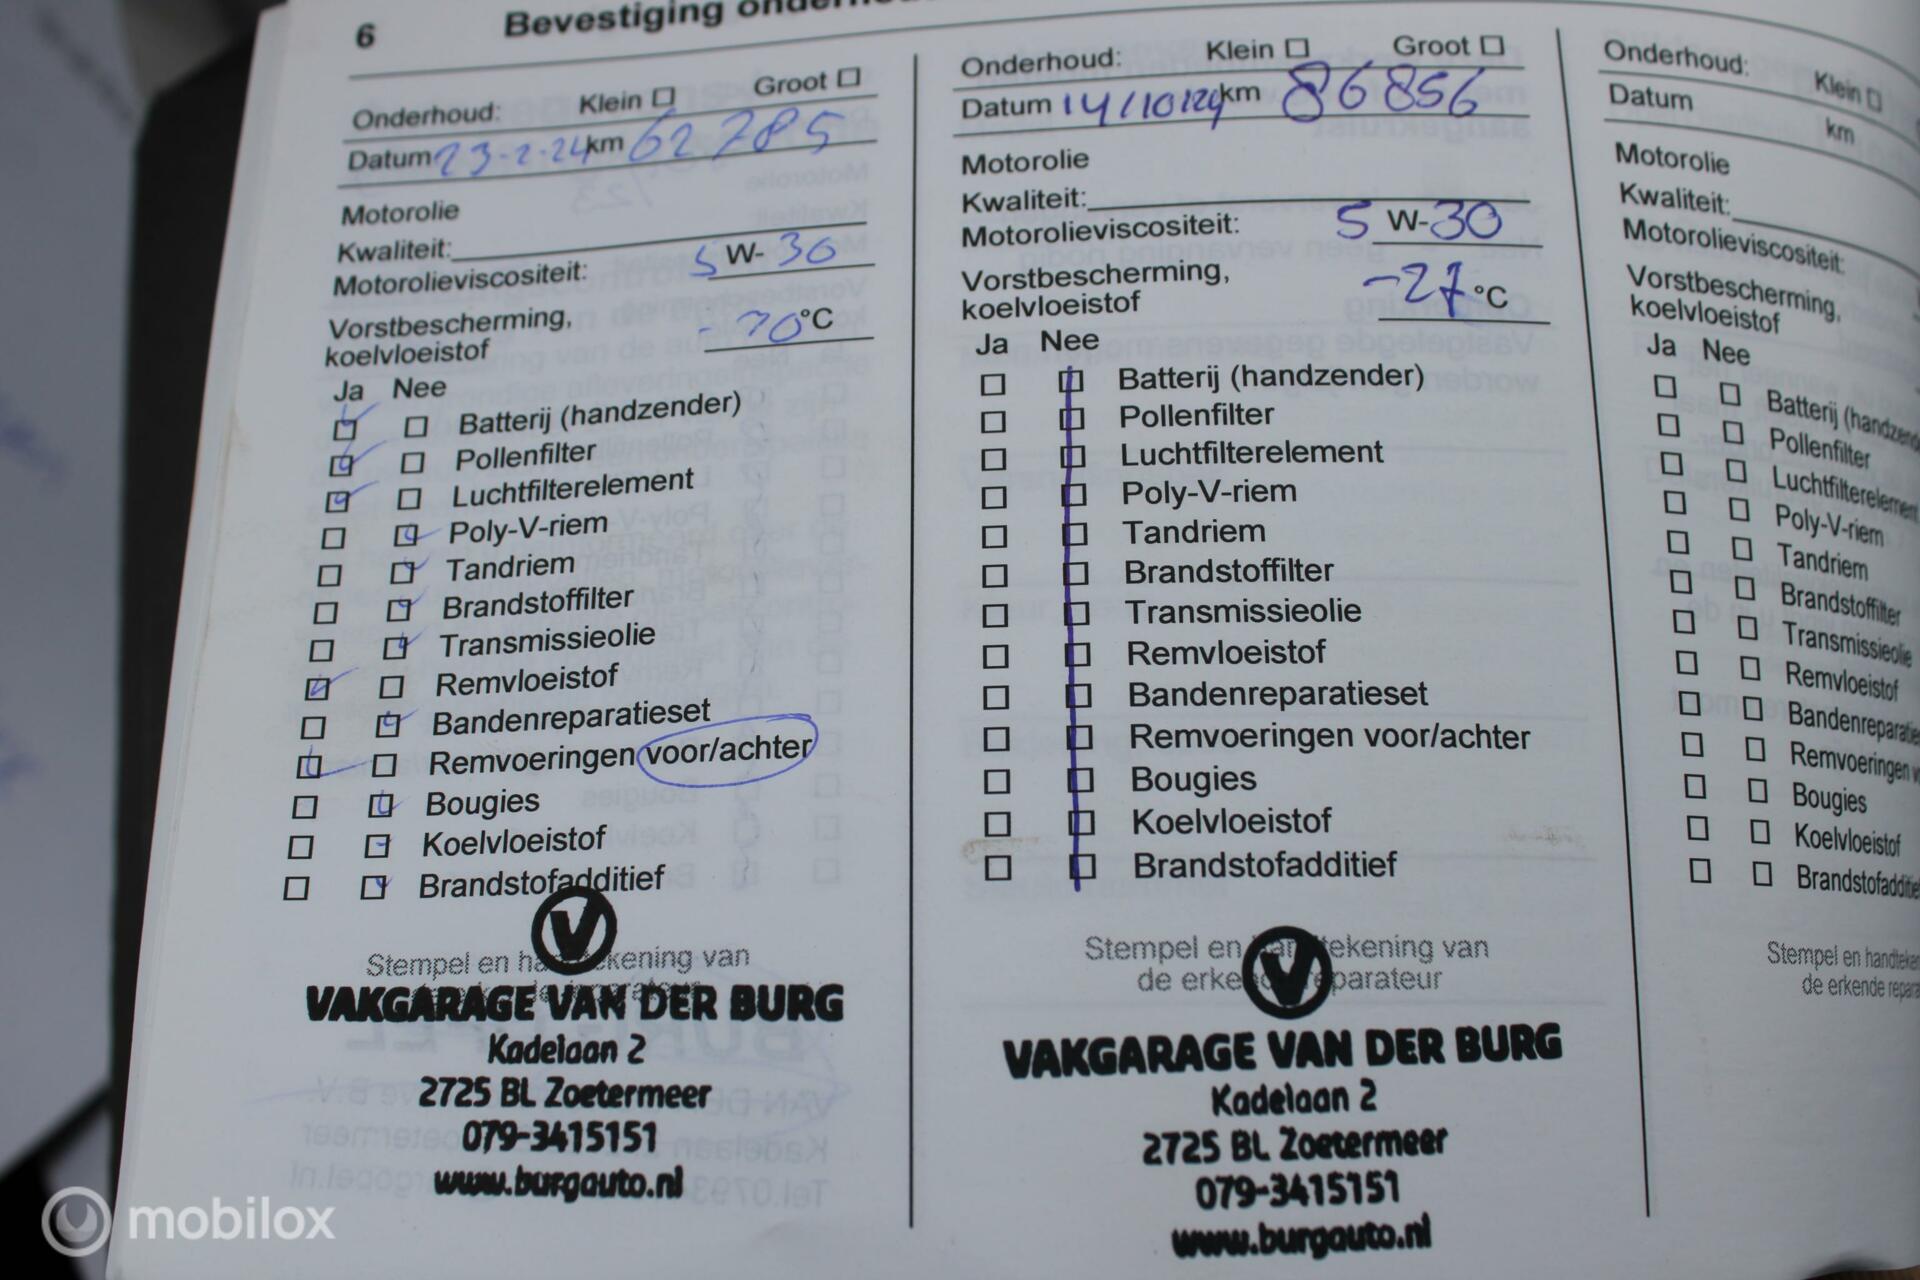 6 Bevestiging
Onderhoud: Klein Groot
Datum 23-2-24 km 62785
Motorolie
Kwaliteit:
Motorolieviscositeit: 5 W-30
Vorstbescherming,
koelvloeistof °C
Ja Nee
Batterij (handzender)
Pollenfilter
Luchtfilterelement
Poly-V-riem
Tandriem
Brandstoffilter
Transmissieolie
Remvloeistof
Bandenreparatieset
Remvoeringen voor/achter
Bougies
Koelvloeistof
Brandstofadditief
Stempel en handtekening van
VAKGARAGE VAN DER BURG
Kadelaan 2
2725 BL Zoetermeer
079-3415151
www.burgauto.nl
Onderhoud: Klein Groot
Datum 14/10/24 km 86856
Motorolie
Kwaliteit:
Motorolieviscositeit: 5 W-30
Vorstbescherming,
koelvloeistof -27 °C
Ja Nee
Batterij (handzender)
Pollenfilter
Luchtfilterelement
Poly-V-riem
Tandriem
Brandstoffilter
Transmissieolie
Remvloeistof
Bandenreparatieset
Remvoeringen voor/achter
Bougies
Koelvloeistof
Brandstofadditief
Stempel en handtekening van
de erkende reparateur
VAKGARAGE VAN DER BURG
Kadelaan 2
2725 BL Zoetermeer
079-3415151
www.burgauto.nl
Onderhoud: Klein
Datum km
Motorolie
Kwaliteit:
Motorolieviscositeit:
Vorstbescherming,
koelvloeistof
Ja Nee
Batterij (handzend
Pollenfilter
Luchtfilterelement
Poly-V-riem
Tandriem
Brandstoffilter
Transmissieolie
Remvloeistof
Bandenreparatie
Remvoeringen v
Bougies
Koelvloeistof
Brandstofadditie
Stempel en handteke
de erkende repara
mobilox